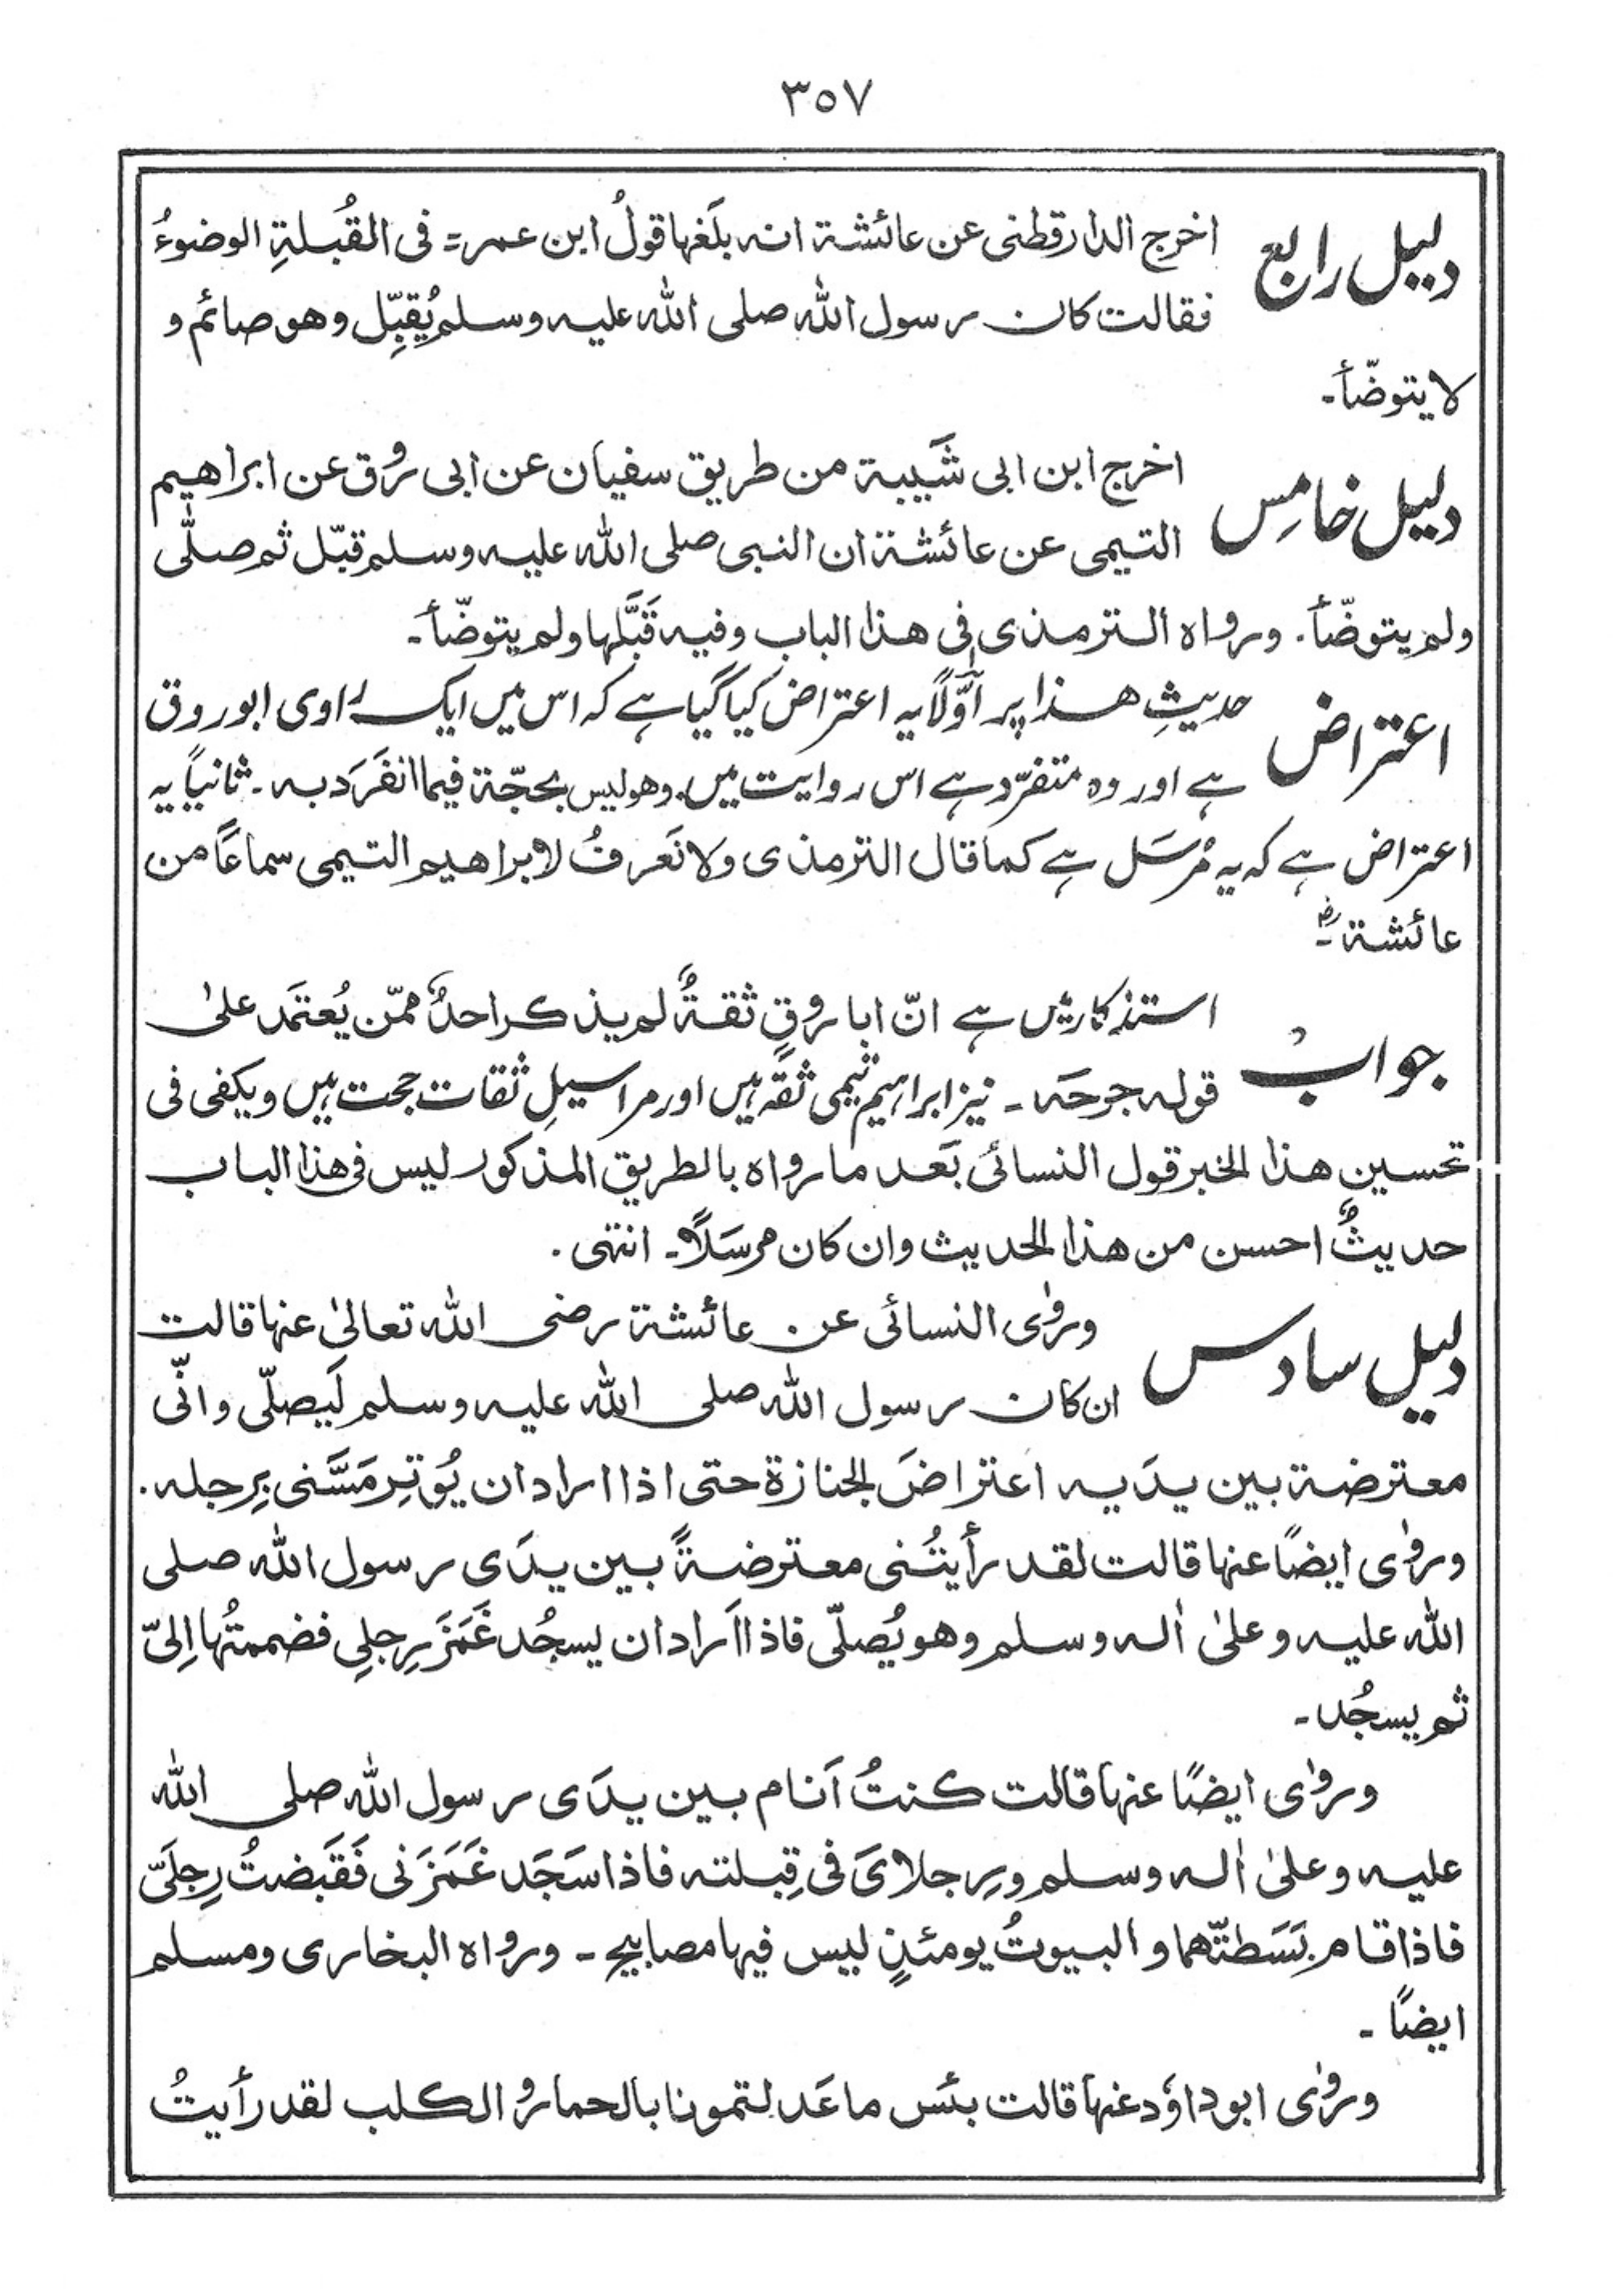 ۳۵۷
دلیل رابع اخرج الدارقطنی عن عائشة انہ بلَغہا قولُ ابن عمر = فی القُبلةِ الوضوءُ
فقالت کان رسول اللہ صلی اللہ علیہ وسلم یُقبِّل وھو صائم و
لا یتوضّأ۔
دلیل خامِس اخرج ابن ابی شَیبة من طریق سفیان عن ابی رَوق عن ابراھیم
التیمی عن عائشة ان النبی صلی اللہ علیہ وسلم قبّل ثم صلّٰی
ولم یتوضّأ. ورواہ الترمذی فی ھذا الباب وفیہ قَبَّلہا ولم یتوضّأ۔
اعتراض حدیثِ ھذا پر اوّلًا یہ اعتراض کیا گیا ہے کہ اس میں ایک راوی ابوروق
ہے اور وہ متفرّد ہے اس روایت میں. وھو لیس بحجّة فیما انفَرَد بہ ۔ ثانیاً یہ
اعتراض ہے کہ یہ مُرسَل ہے کما قال الترمذی ولا نَعرفُ لابراھیم التیمی سماعًا من
عائشةؓ ۔
جوابُ استذکار میں ہے انّ ابا روقٍ ثقةٌ لم یذکر احدٌ ممّن یُعتمَد علیٰ
قولہ جرحَہ ۔ نیز ابراہیم تیمی ثقہ ہیں اور مراسیلِ ثقات حجت ہیں ویکفی فی
تحسین ھذا الخبر قول النسائی بَعد ما رواہ بالطریق المذکور لیس فی ھذا الباب
حدیثٌ احسن من ھذا الحدیث وان کان مرسَلًا۔ انتہی .
دلیل سادس وروٰی النسائی عن عائشة رضی اللہ تعالیٰ عنہا قالت
ان کان رسول اللہ صلی اللہ علیہ وسلم لَیصلّی وانّی
معترضة بین یدَیہ اعتراضَ الجنازة حتی اذا اراد ان یُوتِر مَسَّنی بِرِجلہ .
وروٰی ایضًا عنہا قالت لقد رأیتُنی معترضةً بین یدَی رسول اللہ صلی
اللہ علیہ وعلیٰ اٰلہ وسلم وھو یُصلّی فاذا اَراد ان یسجُد غَمَزَ رِجلِی فضممتُہا اِلیّ
ثم یسجُد ۔
وروٰی ایضًا عنہا قالت کنتُ اَنام بین یدَی رسول اللہ صلی اللہ
علیہ وعلیٰ اٰلہ وسلم ورِجلایَ فی قِبلتہ فاذا سَجَد غَمَزَنی فَقَبَضتُ رِجلَیّ
فاذا قام بَسَطتّھما والبیوتُ یومئذٍ لیس فیہا مصابیح ۔ ورواہ البخاری ومسلم
ایضًا ۔
وروٰی ابوداوٗد عنہا قالت بئس ما عَدلتمونا بالحمار والکلب لقد رأیتُ